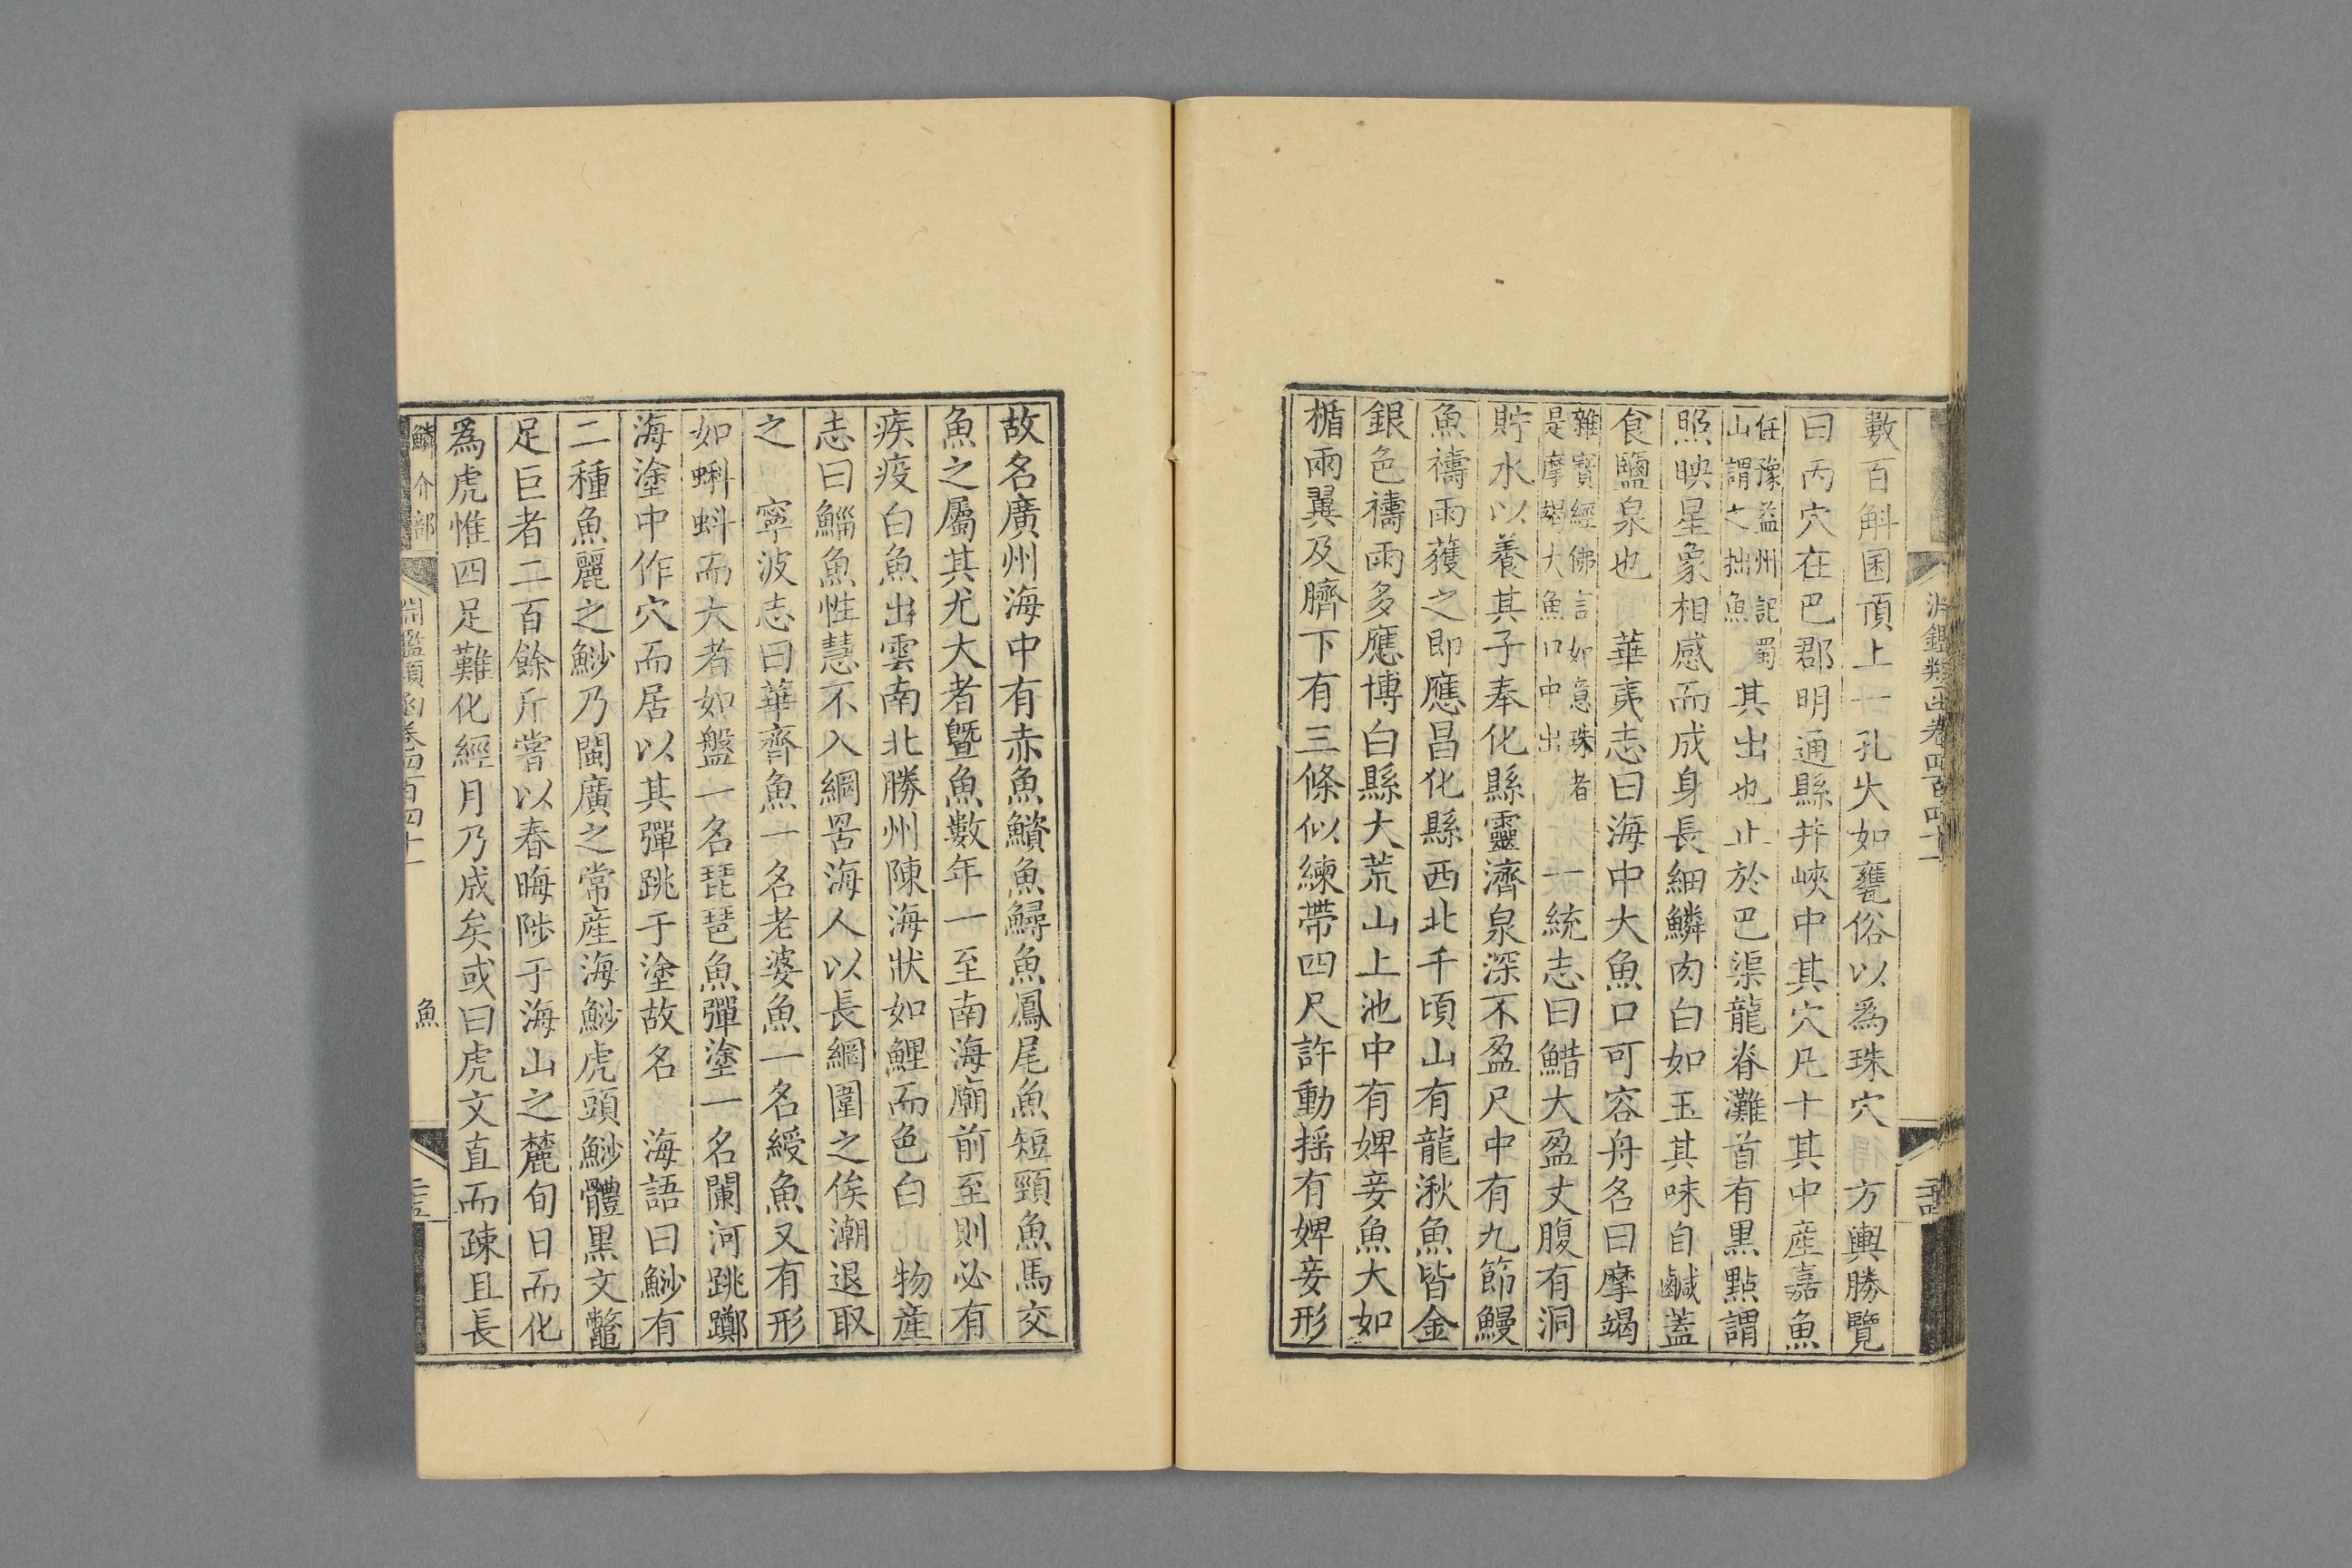 淵鑑類函卷四百四十一
數百斛囷頂上一孔大如甕俗以爲珠穴 方輿勝覽
曰丙穴在巴郡明通縣井峽中其穴凡十其中產嘉魚
任豫益州記蜀
山謂之拙魚
其出也止於巴渠龍脊灘首有黒點謂
照映星象相感而成身長細鱗肉白如玉其味自鹹蓋
食鹽泉也 華夷志曰海中大魚口可容舟名曰摩竭
雜寶經佛言如意珠者
是摩竭大魚口中出
一統志曰䱜大盈丈腹有洞
貯水以養其子奉化縣靈濟泉深不盈尺中有九節鰻
魚禱雨獲之即應昌化縣西北千頃山有龍湫魚皆金
銀色禱雨多應博白縣大荒山上池中有婢妾魚大如
楯兩翼及臍下有三條似練帶四尺許動揺有婢妾形
故名廣州海中有赤魚鱝魚鱘魚鳳尾魚短頸魚馬交
魚之屬其尤大者曁魚數年一至南海廟前至則必有
疾疫白魚出雲南北勝州陳海狀如鯉而色白 物產
志曰鯔魚性慧不入綱罟海人以長網圍之俟潮退取
之 寧波志曰華齊魚一名老婆魚一名綬魚又有形
如蝌蚪而大者如盤一名琵琶魚彈塗一名闌河跳躑
海塗中作穴而居以其彈跳于塗故名 海語曰魦有
二種魚麗之魦乃閩廣之常產海魦虎頭魦體黒文鼈
足巨者二百餘斤嘗以春晦陟于海山之麓旬日而化
爲虎惟四足難化經月乃成矣或曰虎文直而疎且長
鱗介部 淵鑑類函卷四百四十一 魚